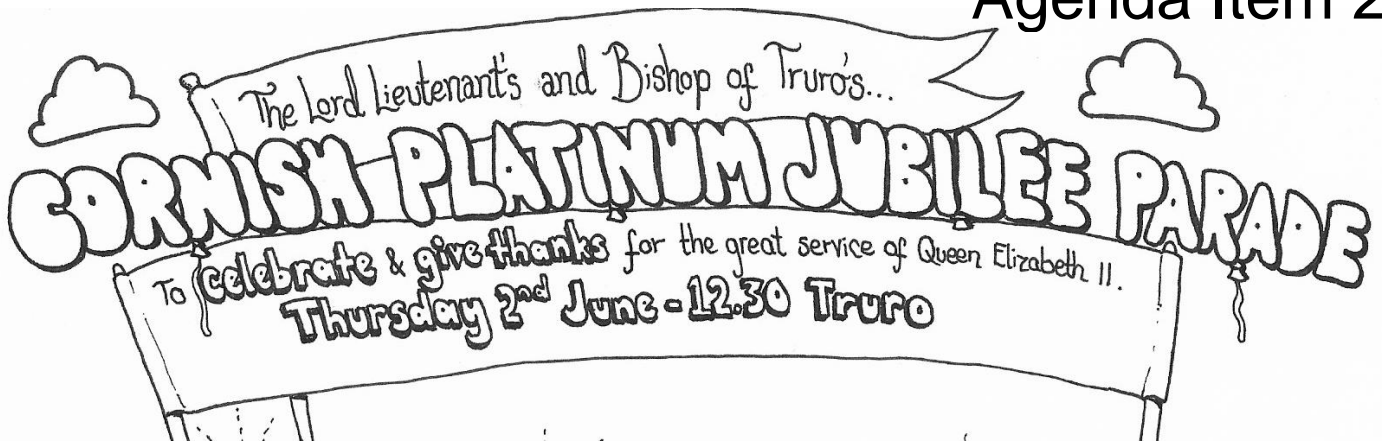 Agenda Item 2
The Lord Lieutenant's and Bishop of Truro's...
CORNISH PLATINUM JUBILEE PARADE
To celebrate & give thanks for the great service of Queen Elizabeth II.
Thursday 2nd June - 12.30 Truro